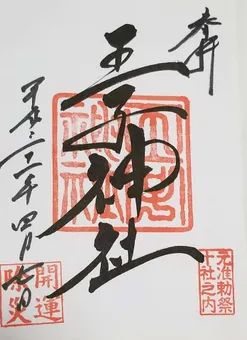 奉拝
王子神社
平成三十一年四月 日
王子神社
元准勅祭
十社之内
開運
除災